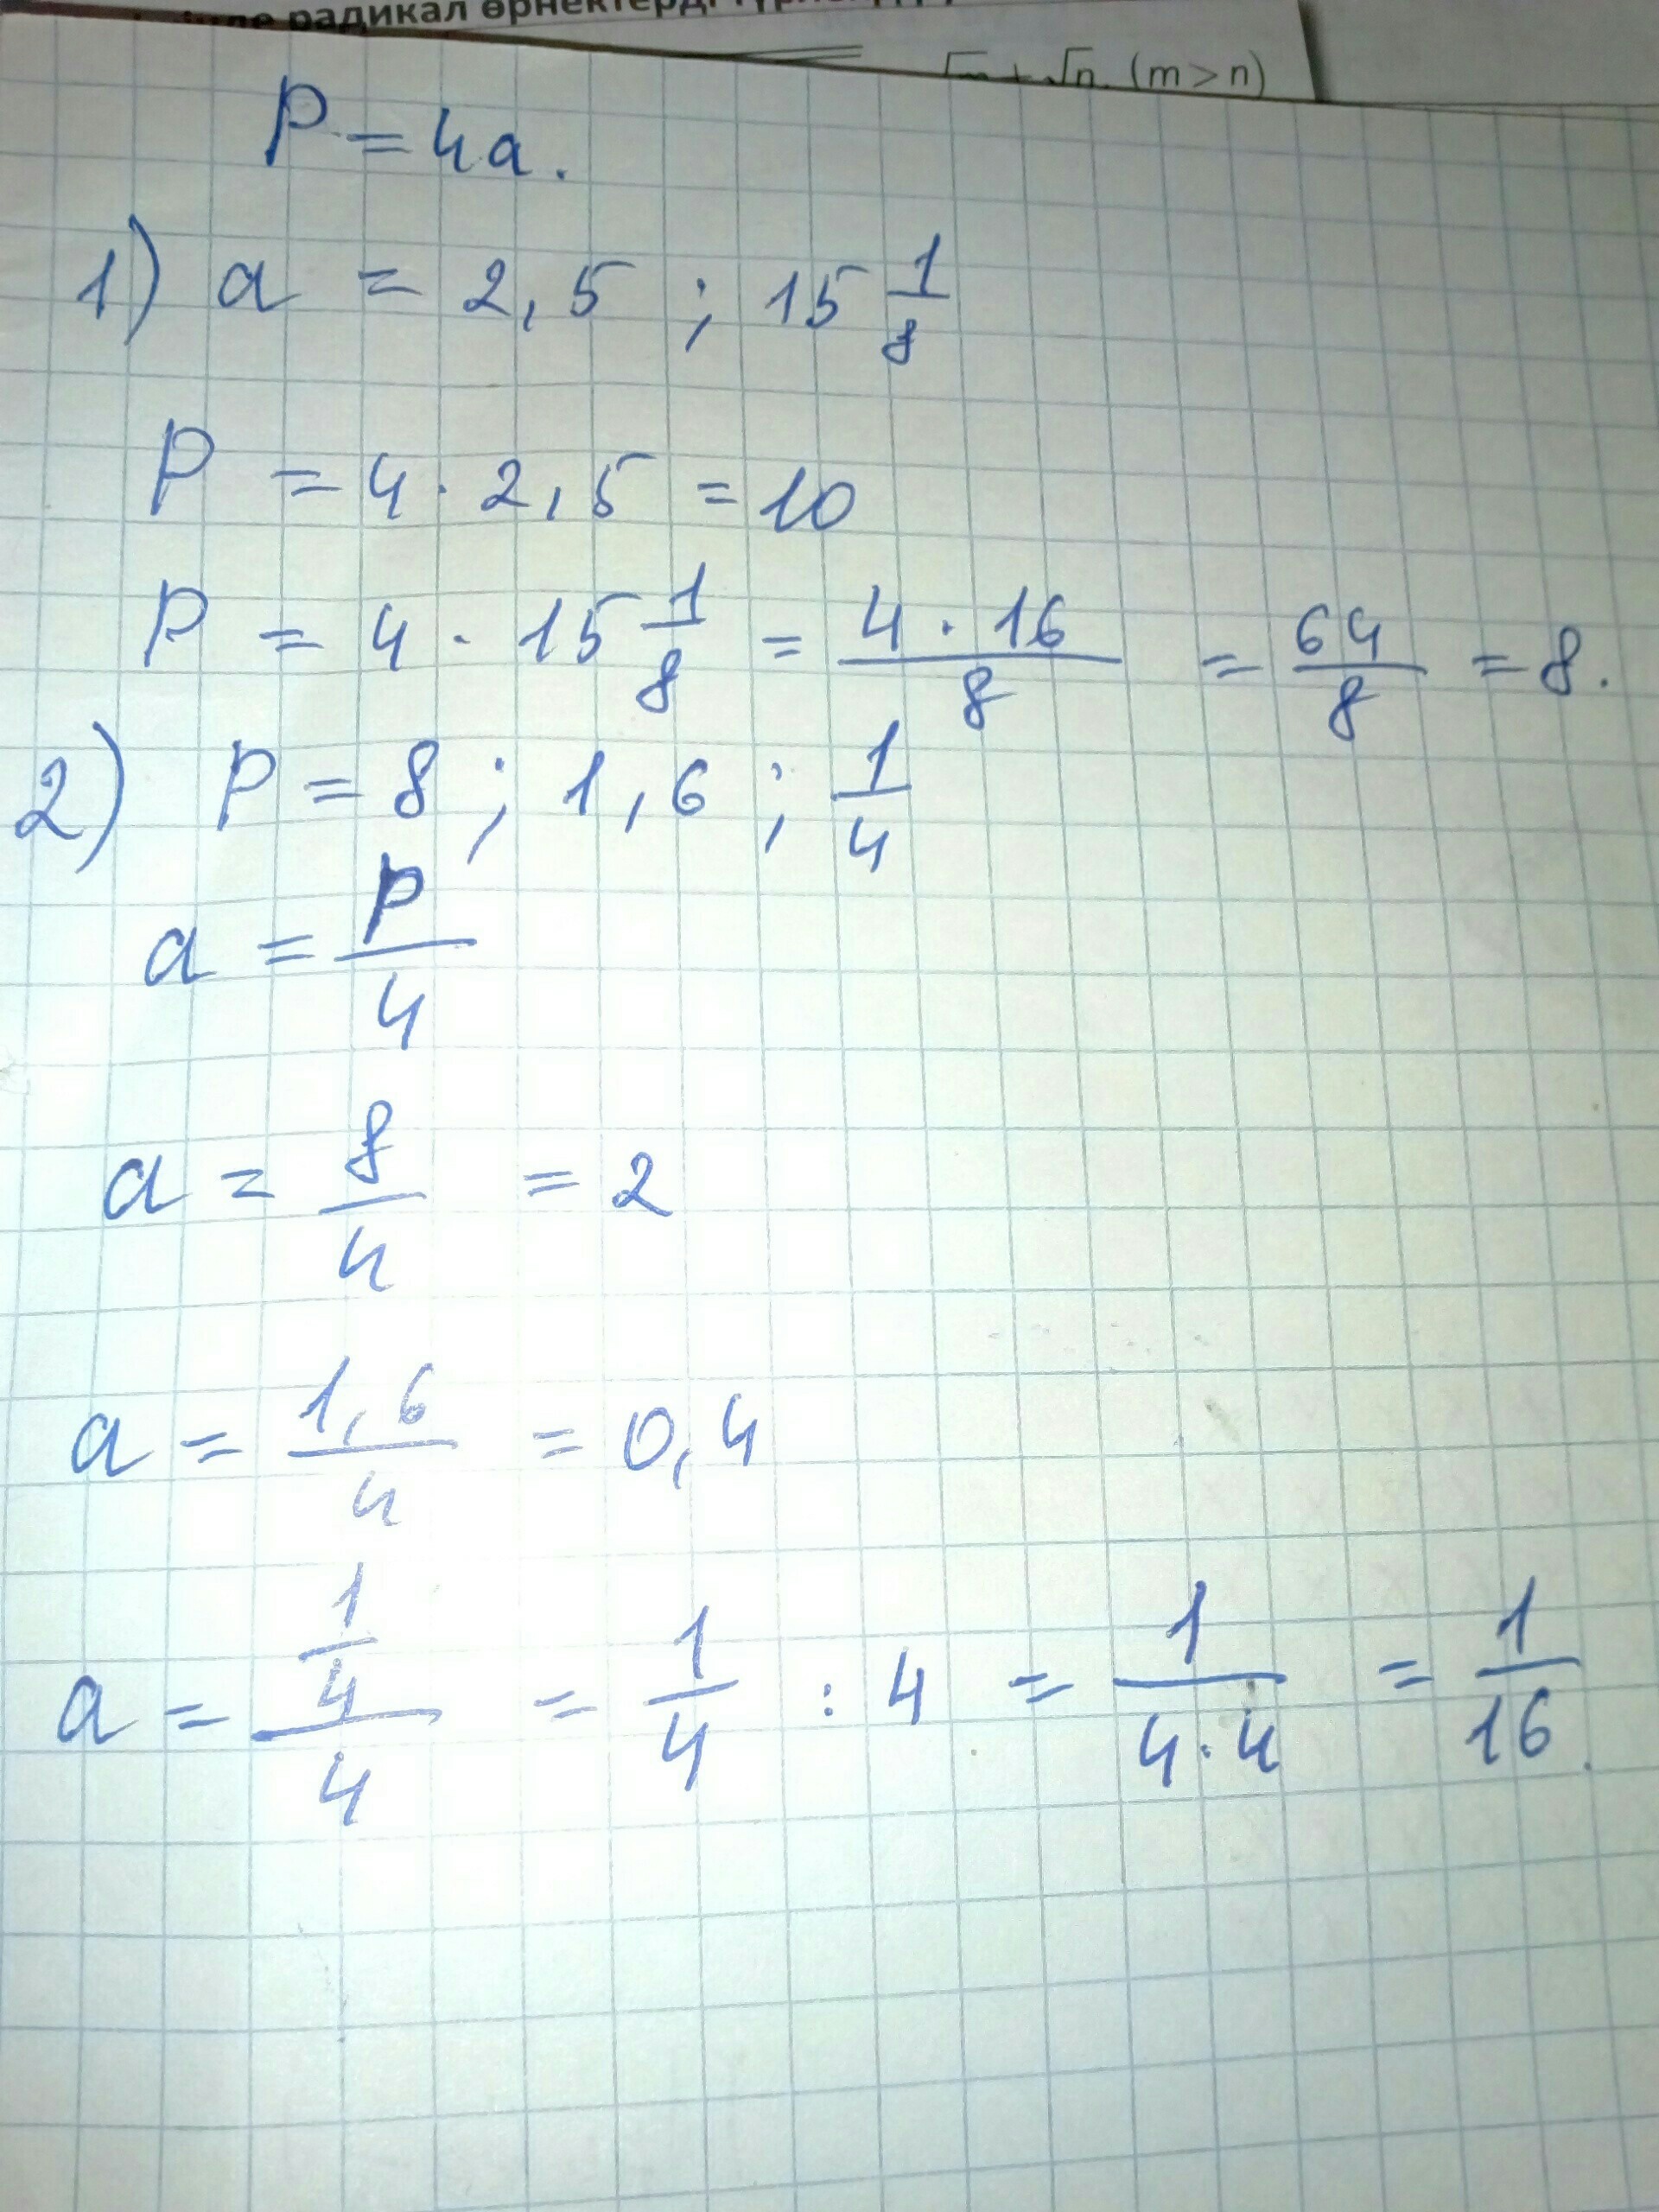 радикал өрнектерді
√n. (m > n)
P = 4a.
1) a = 2,5 ; 15 1/8
P = 4 · 2,5 = 10
P = 4 · 15 1/8 = 4 · 16 / 8 = 64/8 = 8.
2) P = 8 ; 1,6 ; 1/4
a = P/4
a = 8/4 = 2
a = 1,6/4 = 0,4
a = 1/4 / 4 = 1/4 : 4 = 1/4·4 = 1/16.